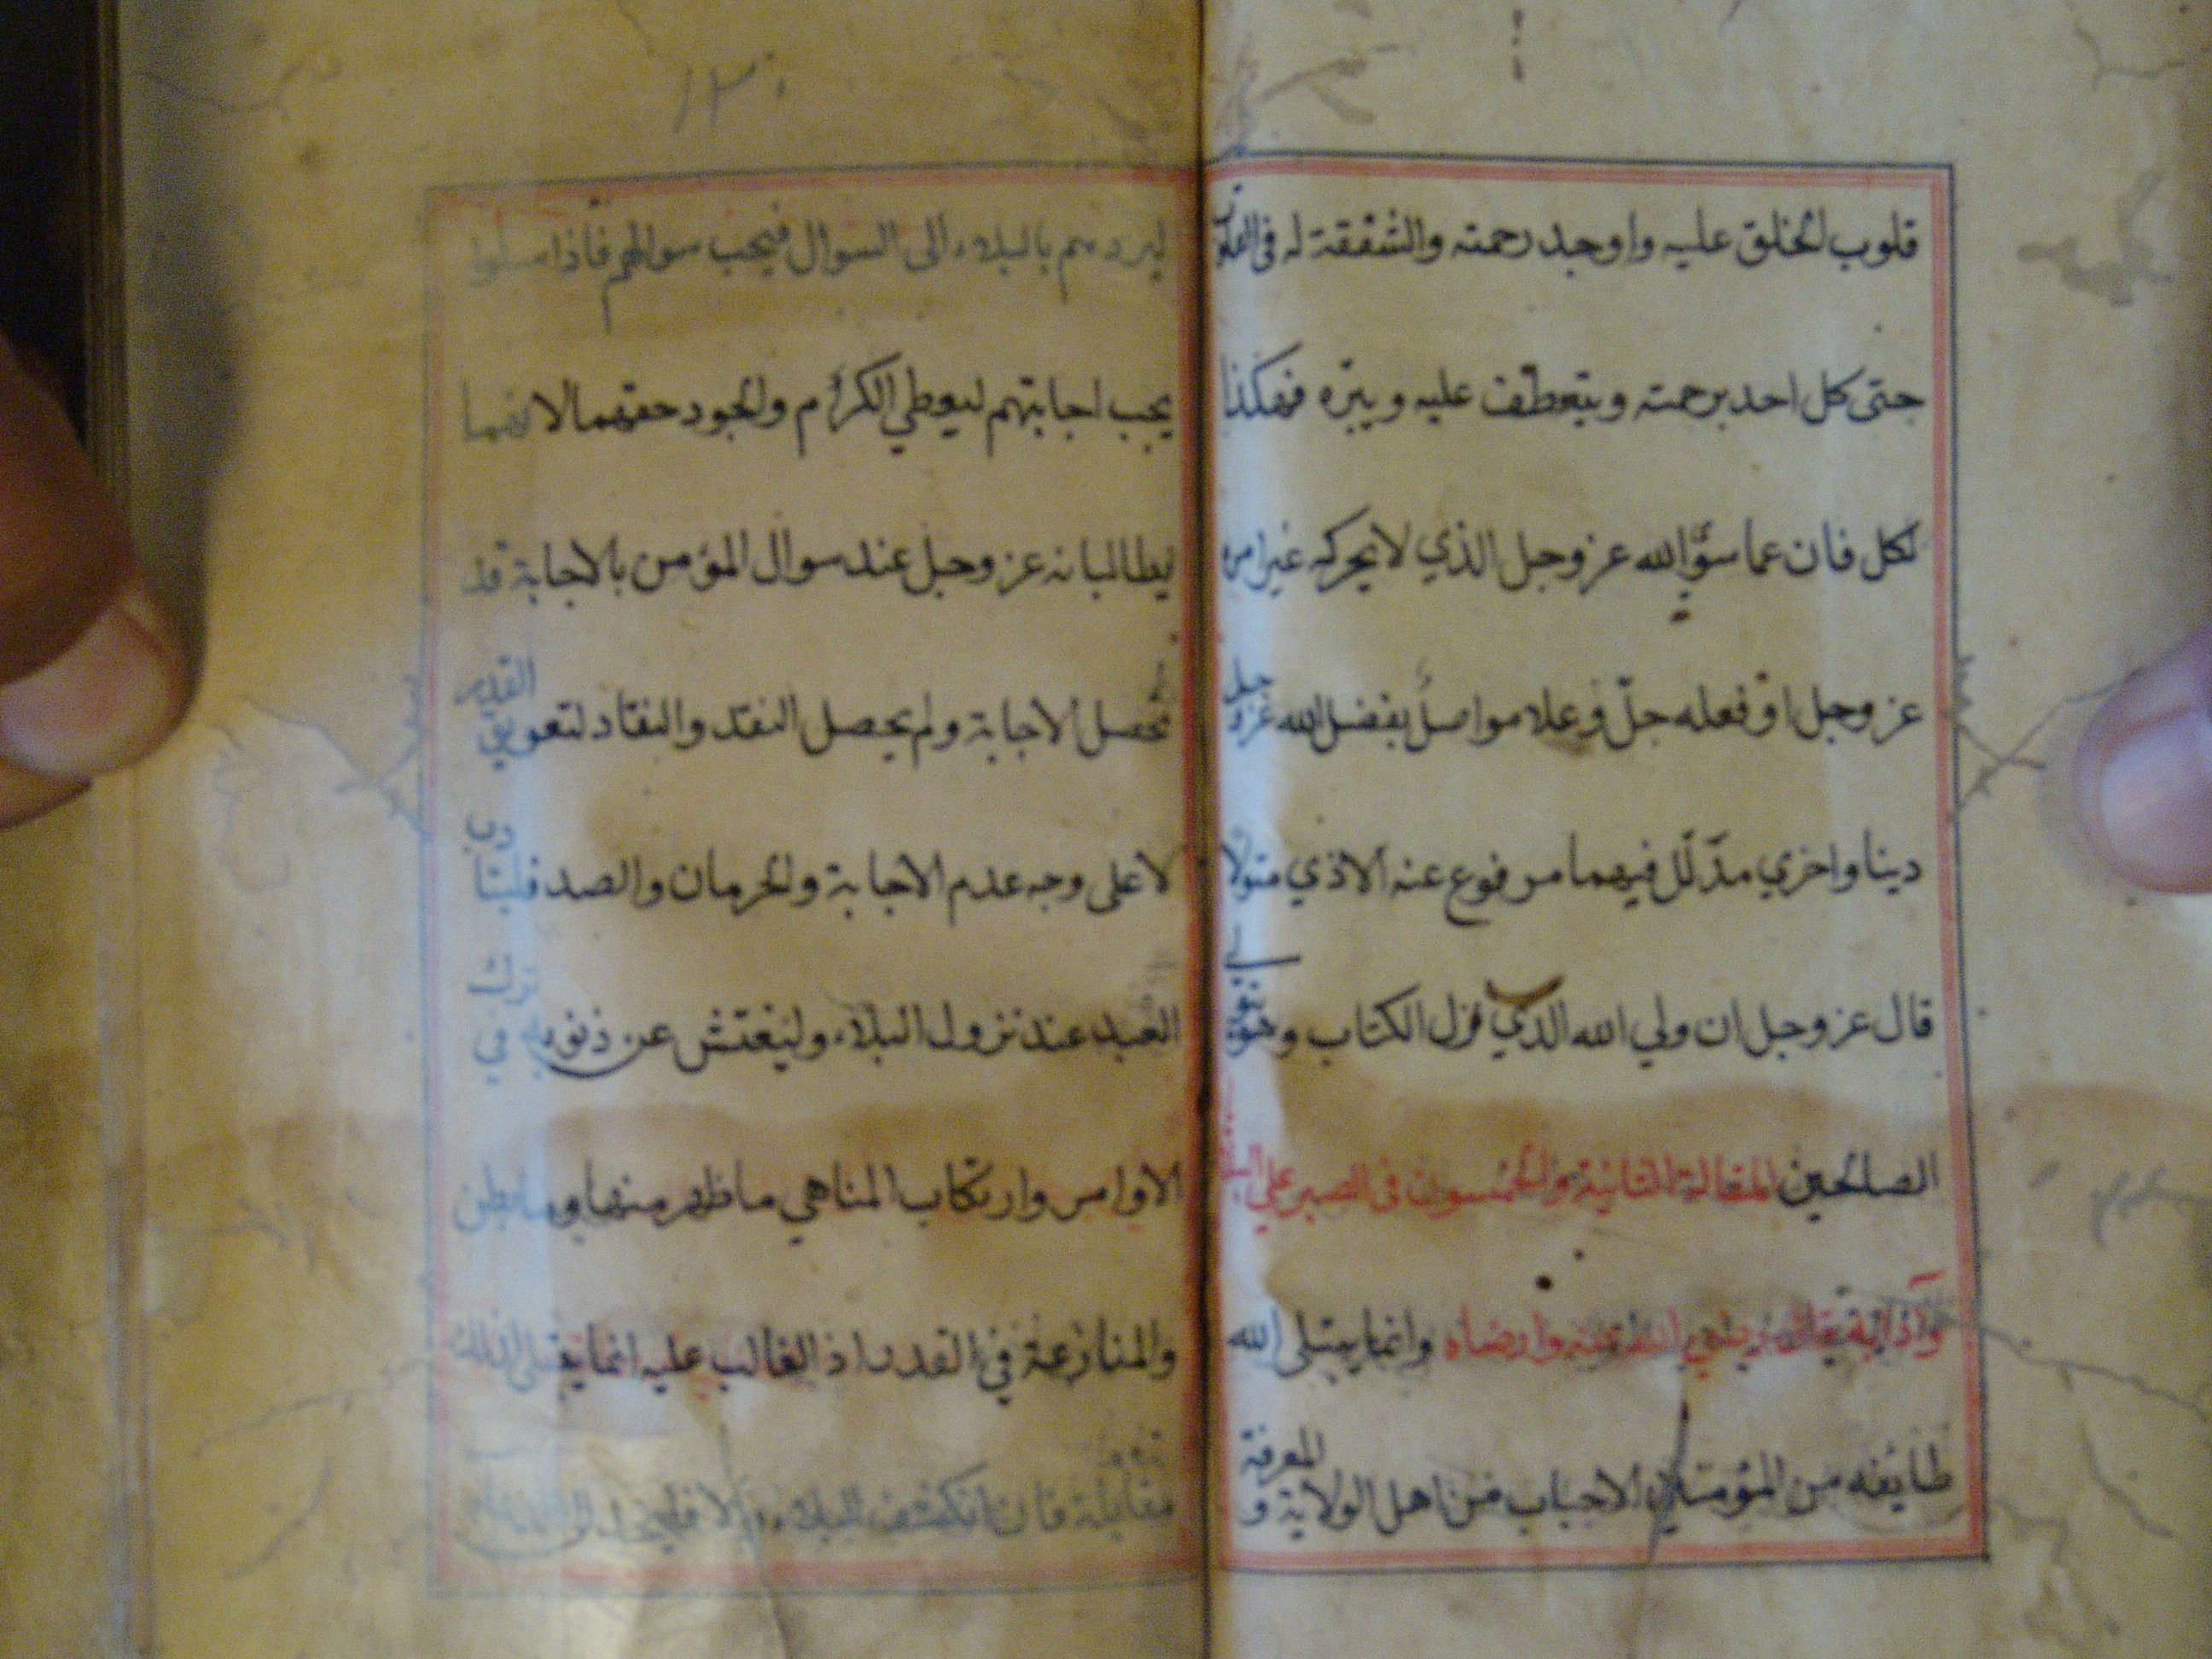 قلوب الخلق عليه واوجد رحمته والشفقة له في القلوب
حتى كل احد يرحمته ويتعطف عليه ويبره فهكذا
لكل فان عما سوى الله عز وجل الذي لا يحركه غير امره
عز وجل او فعله جل وعلا مواصل بفضل الله عز وجل
دينا واخري مدلل فيهما مرفوع عنه الاذي متولا
قال عز وجل ان ولي الله الذي نزل الكتاب وهو يتولى
الصالحين المقالة الثانية والخمسون في الصبر علي
وارضاه وانما يبتلى الله
طايفه من المؤمنين الاحباب من اهل الولاية و المعرفة
١٣٠
ليردهم بالبلاء الى السوال فيحب سوالهم فاذا سالوا
يحب اجابتهم ليعطي الكرم والجود حقهما لانهما
يطالبانه عز وجل عند سوال المؤمن بالاجابة قد
تحصل الاجابة ولم يحصل النقد والنفاد لتعويق القدر
لا على وجه عدم الاجابة والحرمان والصد فليتادب
العبد عند نزول البلاء وليفتش عن ذنوبه في ترك
الاوامر وارتكاب المناهي ما ظهر منها وما بطن
والمنازعة في القدر اذ الغالب عليه انما يبتلى لذلك
مقابلة فان انكشف البلاء والا